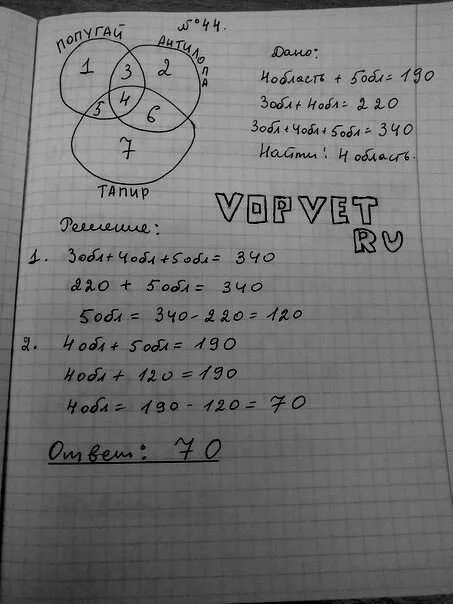 №44.
ПОПУГАЙ
АНТИЛОПА
1 3 2
5 4 6
7
ТАПИР
Дано:
4область + 5обл = 190
3обл + 4обл = 220
3обл + 4обл + 5обл = 340
Найти: 4 область.
VOPVET
RU
Решение:
1. 3обл + 4обл + 5обл = 340
220 + 5обл = 340
5обл = 340 - 220 = 120
2. 4обл + 5обл = 190
4обл + 120 = 190
4обл = 190 - 120 = 70
Ответ: 70